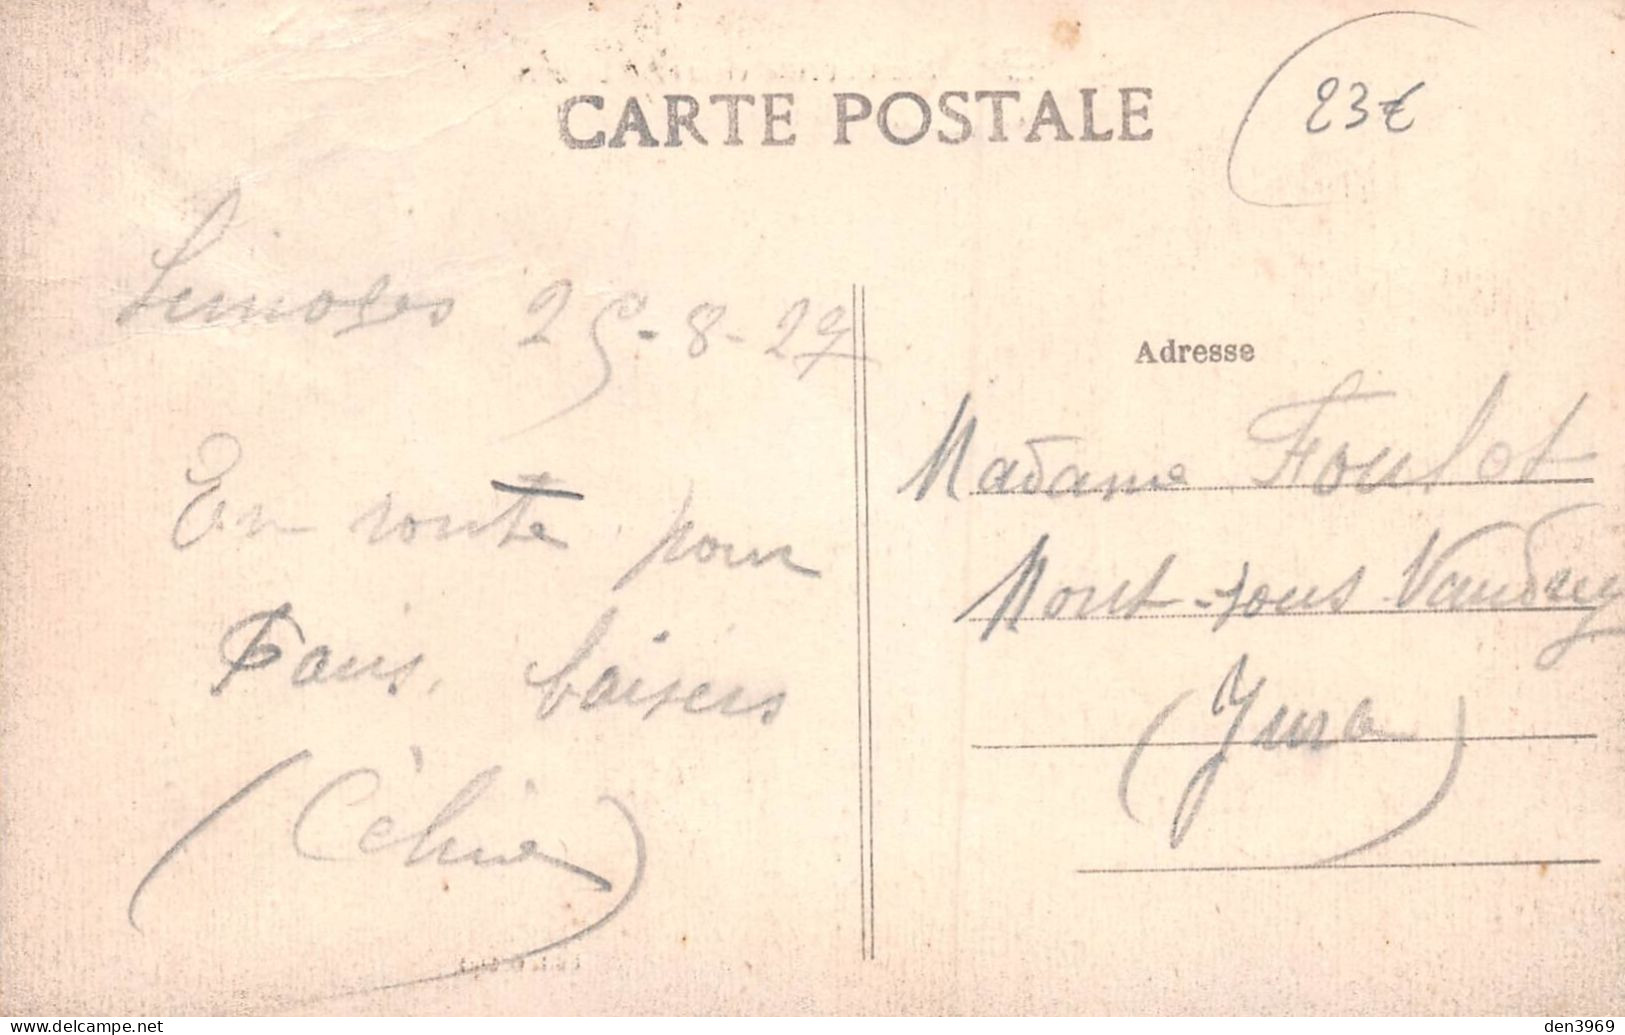 CARTE POSTALE
23€
Limoges 25-8-27
En route pour
Paris, baisers
Adresse
Madame Foulot
Mont-sous Vaudrey
(Jura)
delcampe.net
den3969